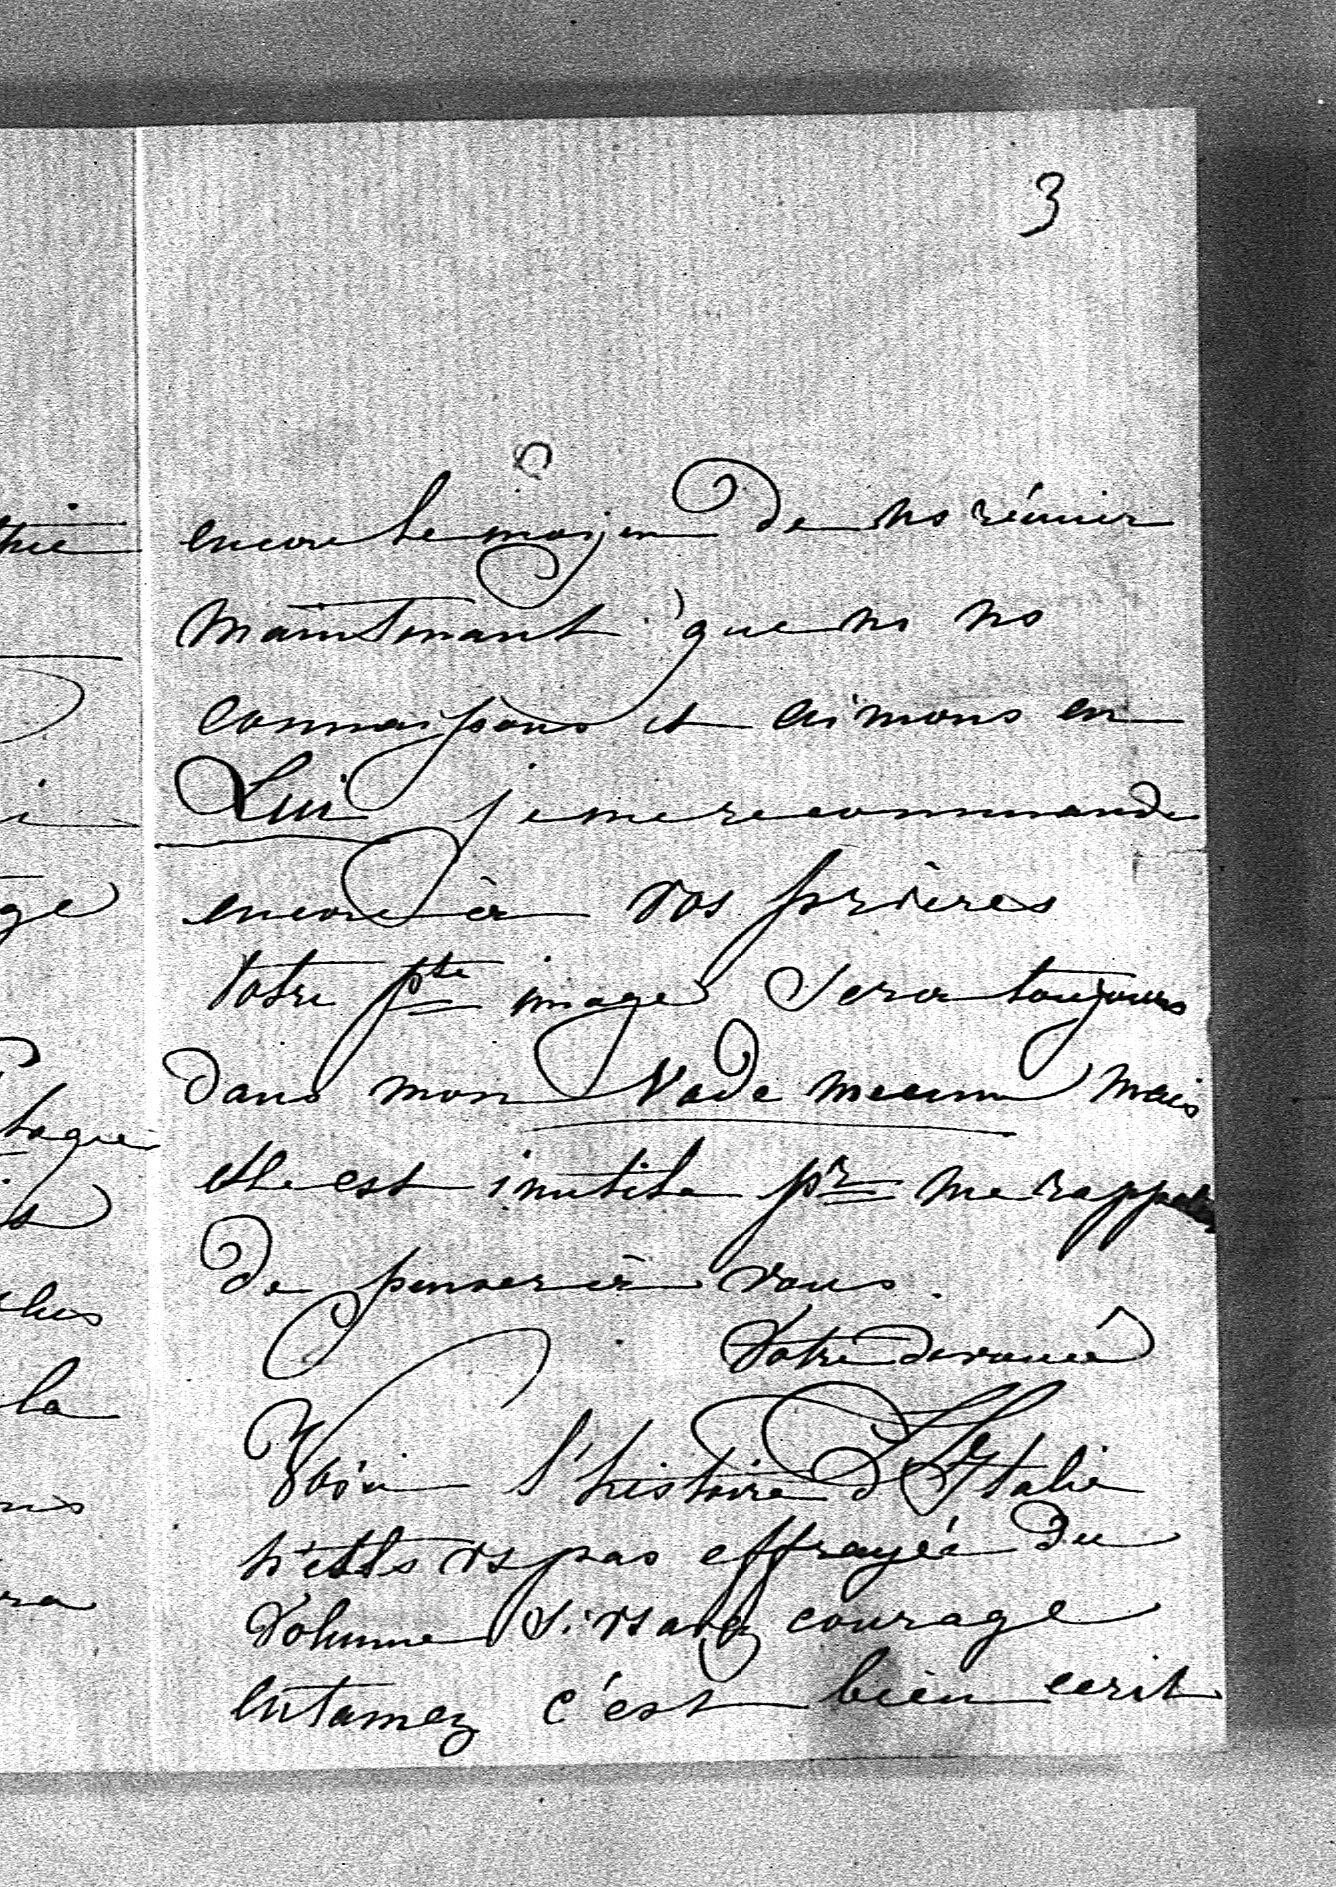 3
encore le moyen de ns réunir
maintenant que ns ns
connaissons et aimons en
Lui je me recommande
encore à vos prières
Votre pte image sera toujours
dans mon Vade mecum mais
elle est inutile pr me rappeler
de penser à vous.
Votre dévouée
Voici l'histoire d'Italie
n'êtes vs pas effrayée du
Volume Si vs avez courage
entamez c'est bien ecrit
thie
i
ge
la
ra